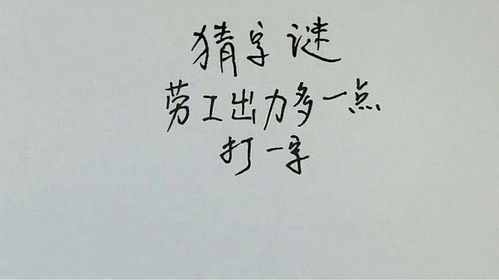 猜字谜
劳工出力多一点
打一字